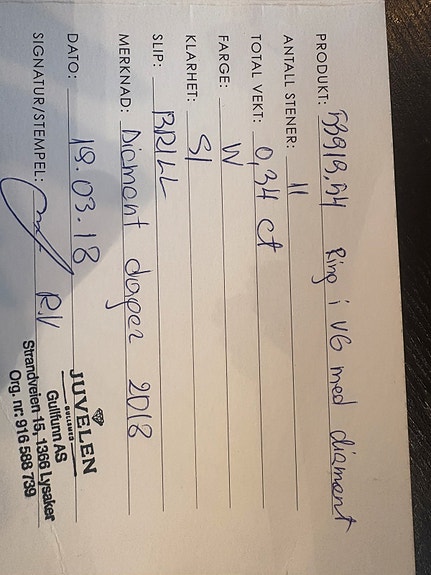 PRODUKT: 53919,54 Ring i VG med diamant
ANTALL STENER: 11
TOTAL VEKT: 0,34 ct
FARGE: W
KLARHET: SI
SLIP: BRILL
MERKNAD: Diamant dager 2018
DATO: 18.03.18
SIGNATUR/STEMPEL: R.V
JUVELEN
GULLSMED
Gullfunn AS
Strandveien 15, 1366 Lysaker
Org. nr: 916 588 739